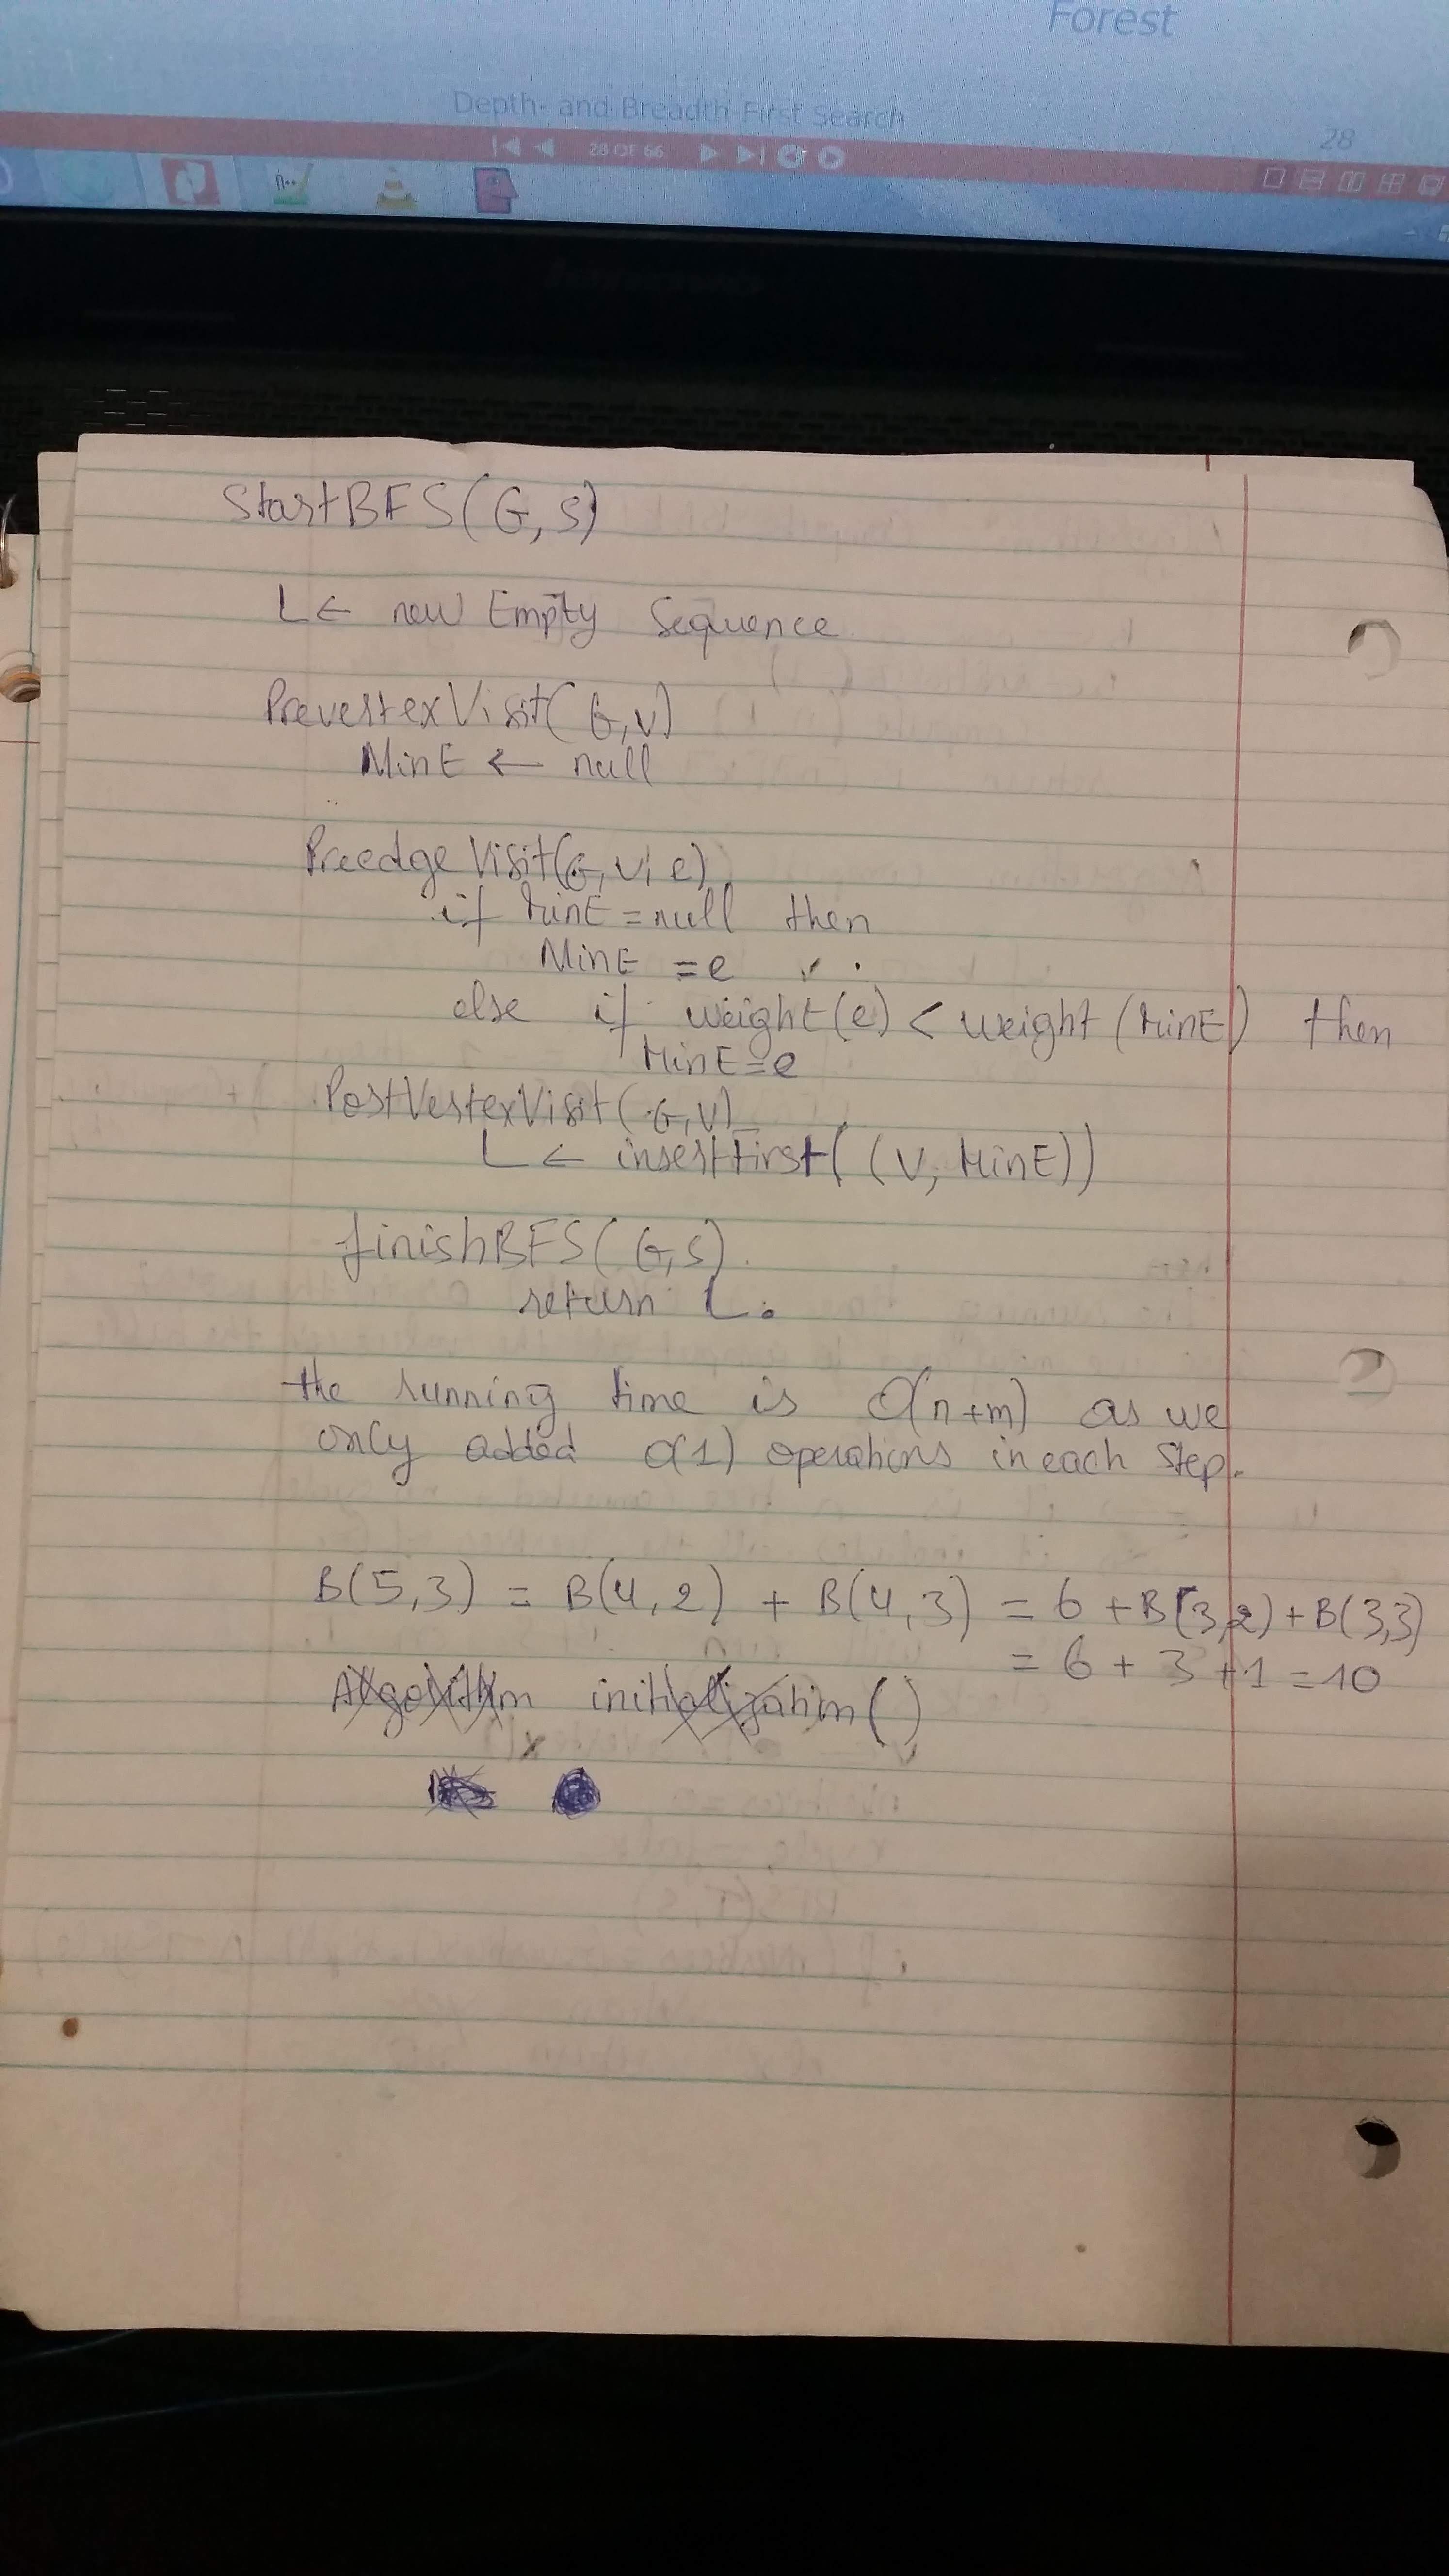 Forest
Depth- and Breadth-First Search
28
28 OF 66
StartBFS(G,S)
L ← new Empty Sequence
PrevertexVisit(G,v)
MinE ← null
PreedgeVisit(G,v,e)
if MinE = null then
MinE = e
else if weight(e) < weight(MinE) then
MinE = e
PostVertexVisit(G,V)
L ← insertFirst((V, MinE))
finishBFS(G,S)
return L.
the running time is O(n+m) as we
only added O(1) operations in each step.
B(5,3) = B(4,2) + B(4,3) = 6 + B(3,2) + B(3,3)
= 6 + 3 + 1 = 10
Algorithm initialization()